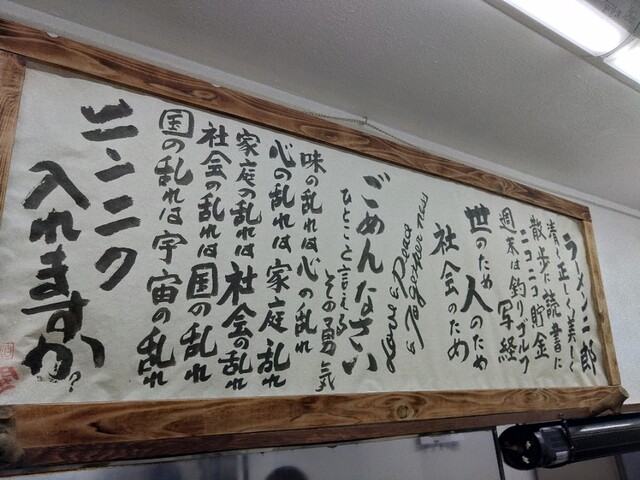 ラーメン二郎
清く正しく美しく
散歩に読書に
ニコニコ貯金
週末は釣りゴルフ
写経
世のため人のため
社会のため
Love & Peace
Together now
ごめんなさい
ひとこと言える
その勇気
味の乱れは心の乱れ
心の乱れは家庭の乱れ
家庭の乱れは社会の乱れ
社会の乱れは国の乱れ
国の乱れは宇宙の乱れ
ニンニク
入れますか?